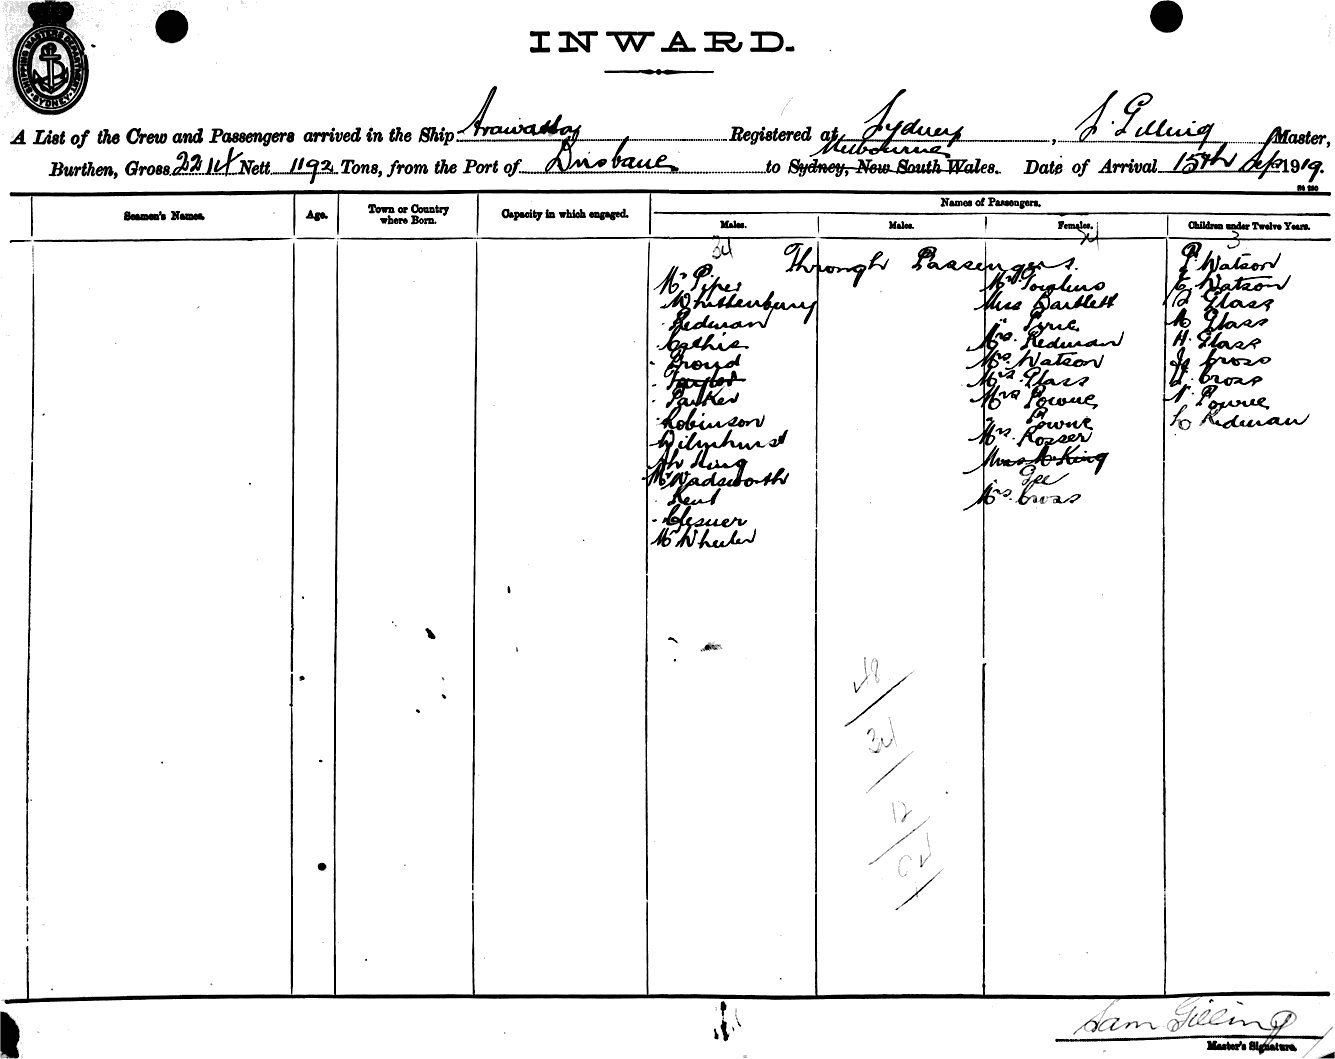 SHIPPING MASTERS DEPARTMENT SYDNEY
INWARD.
A List of the Crew and Passengers arrived in the Ship Arawatta Registered at Sydney, S. Gilling Master,
Burthen, Gross 2214 Nett 1192 Tons, from the Port of Brisbane to Sydney, New South Wales. Melbourne Date of Arrival 15th Sep 1919.
Names of Passengers.
Seamen's Names. Age. Town or Country where Born. Capacity in which engaged. Males. Males. Females. Children under Twelve Years.
34 3
Through Passengers.
Mr Piper
Whittenbury
Redman
Proud
Taylor
Parker
Robinson
Wilmhurst
Ah King
Mr Wadsworth
Kent
Mr Wheeler
Miss Bartlett
" Pyne
Mrs. Redman
Mrs. Watson
Mrs. Glass
Mrs Powne
" Powne
Mrs. Rosser
Gee
Mrs. Cross
P Watson
E. Watson
Glass
M Glass
H. Glass
Cross
Cross
Powne
Redman
48
34
12
Sam Gilling
Master's Signature.